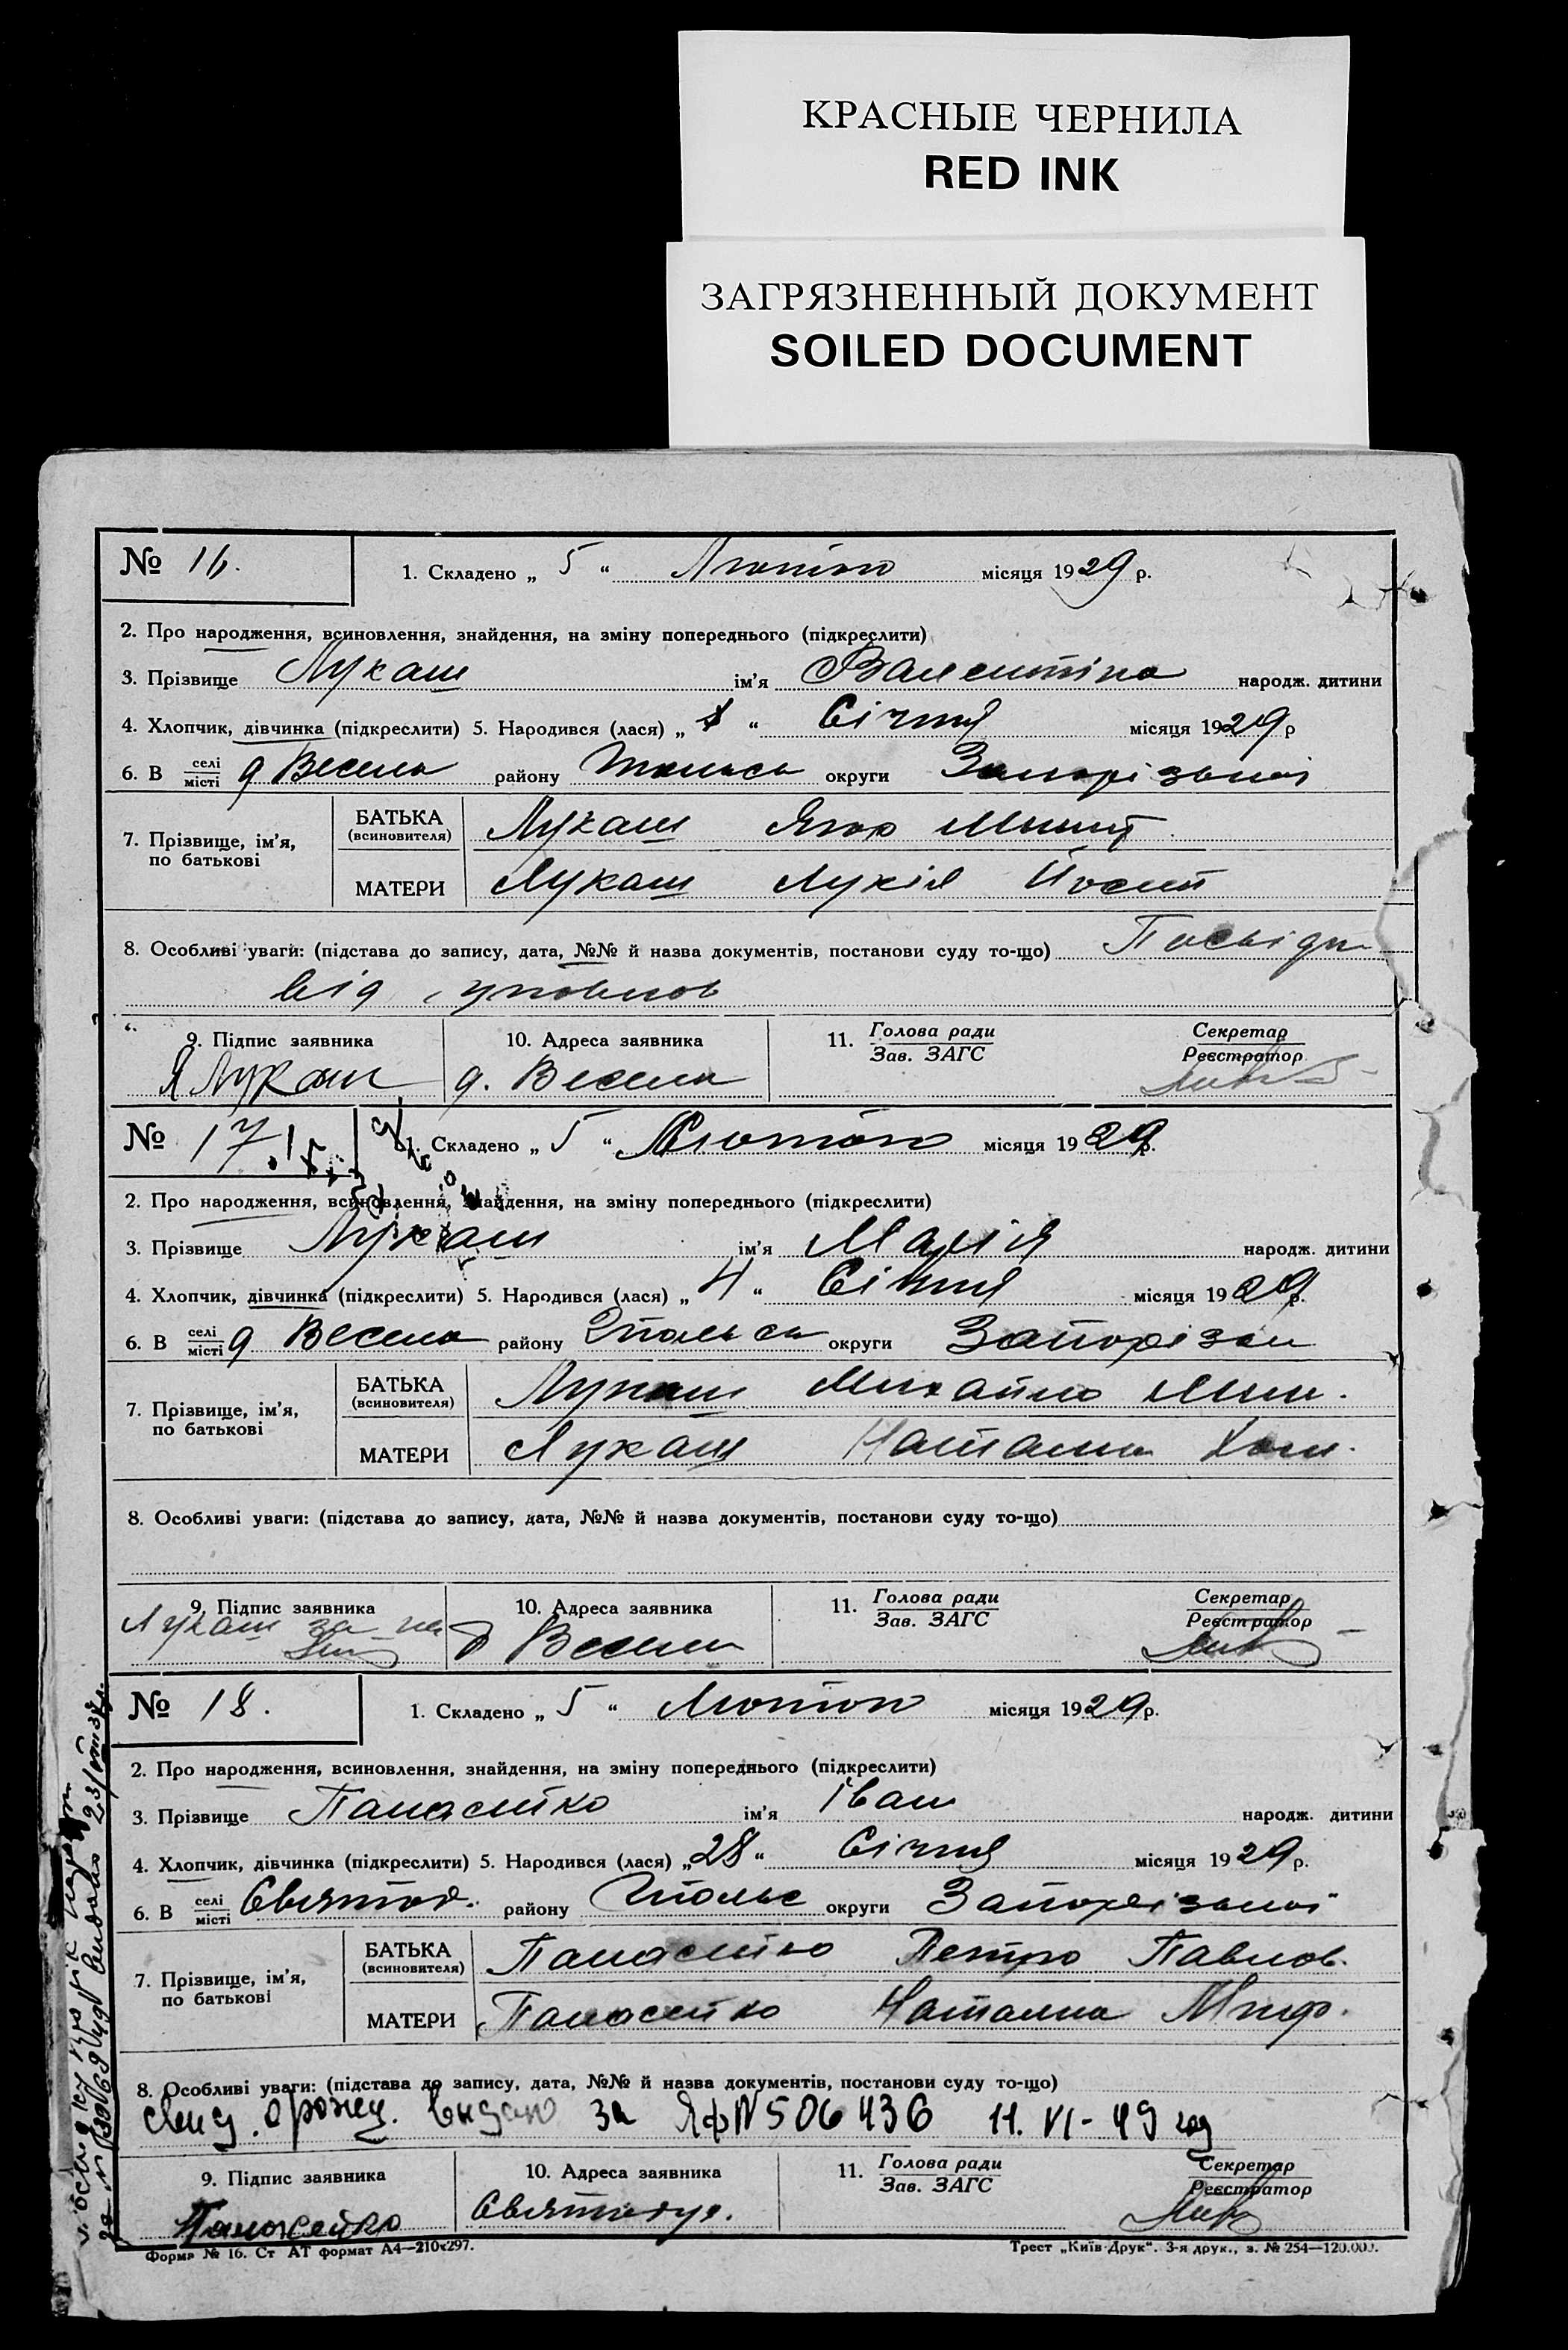 КРАСНЫЕ ЧЕРНИЛА
RED INK
ЗАГРЯЗНЕННЫЙ ДОКУМЕНТ
SOILED DOCUMENT
№ 16.
1. Складено „ 5 “ Лютого місяця 1929 р.
2. Про народження, всиновлення, знайдення, на зміну попереднього (підкреслити)
3. Прізвище Лукаш ім’я Валентіна народж. дитини
4. Хлопчик, дівчинка (підкреслити) 5. Народився (лася) „ “ Січня місяця 1929 р
6. В селі місті д Весела району округи Запорізької
7. Прізвище, ім’я, по батькові
БАТЬКА (всиновителя) Лукаш
МАТЕРИ Лукаш Лукія Йосип
8. Особливі уваги: (підстава до запису, дата, №№ й назва документів, постанови суду то-що) Посвідч
від уповнов
9. Підпис заявника 10. Адреса заявника 11. Голова ради Зав. ЗАГС Секретар Реєстратор
Я Лукаш д. Весела
№ 17.
1. Складено „ 5 “ Лютого місяця 1929 р.
2. Про народження, всиновлення, знайдення, на зміну попереднього (підкреслити)
3. Прізвище Лукаш ім’я Марія народж. дитини
4. Хлопчик, дівчинка (підкреслити) 5. Народився (лася) „ 4 “ Січня місяця 1929 р.
6. В селі місті д Весела району округи Запорізьк
7. Прізвище, ім’я, по батькові
БАТЬКА (всиновителя) Лукаш Михайло Мин.
МАТЕРИ Лукаш Наталка
8. Особливі уваги: (підстава до запису, дата, №№ й назва документів, постанови суду то-що)
9. Підпис заявника 10. Адреса заявника 11. Голова ради Зав. ЗАГС Секретар Реєстратор
Лукаш за д Весела
№ 18.
1. Складено „ 5 “ Лютого місяця 1929 р.
2. Про народження, всиновлення, знайдення, на зміну попереднього (підкреслити)
3. Прізвище Панасейко ім’я Іван народж. дитини
4. Хлопчик, дівчинка (підкреслити) 5. Народився (лася) „ 28 “ Січня місяця 1929 р.
6. В селі місті Святод. району округи Запорізької
7. Прізвище, ім’я, по батькові
БАТЬКА (всиновителя) Панасейко Петро Павлов.
МАТЕРИ Панасейко Наталка Миф.
8. Особливі уваги: (підстава до запису, дата, №№ й назва документів, постанови суду то-що)
Свид. о рожд. выдано за ЯФ N 506436 11. VI - 49 год
9. Підпис заявника 10. Адреса заявника 11. Голова ради Зав. ЗАГС Секретар Реєстратор
Панасейко Святодух.
Форма № 16. Ст АТ формат А4—210х297.
Трест „Київ-Друк“. 3-я друк., з. № 254—120.000.